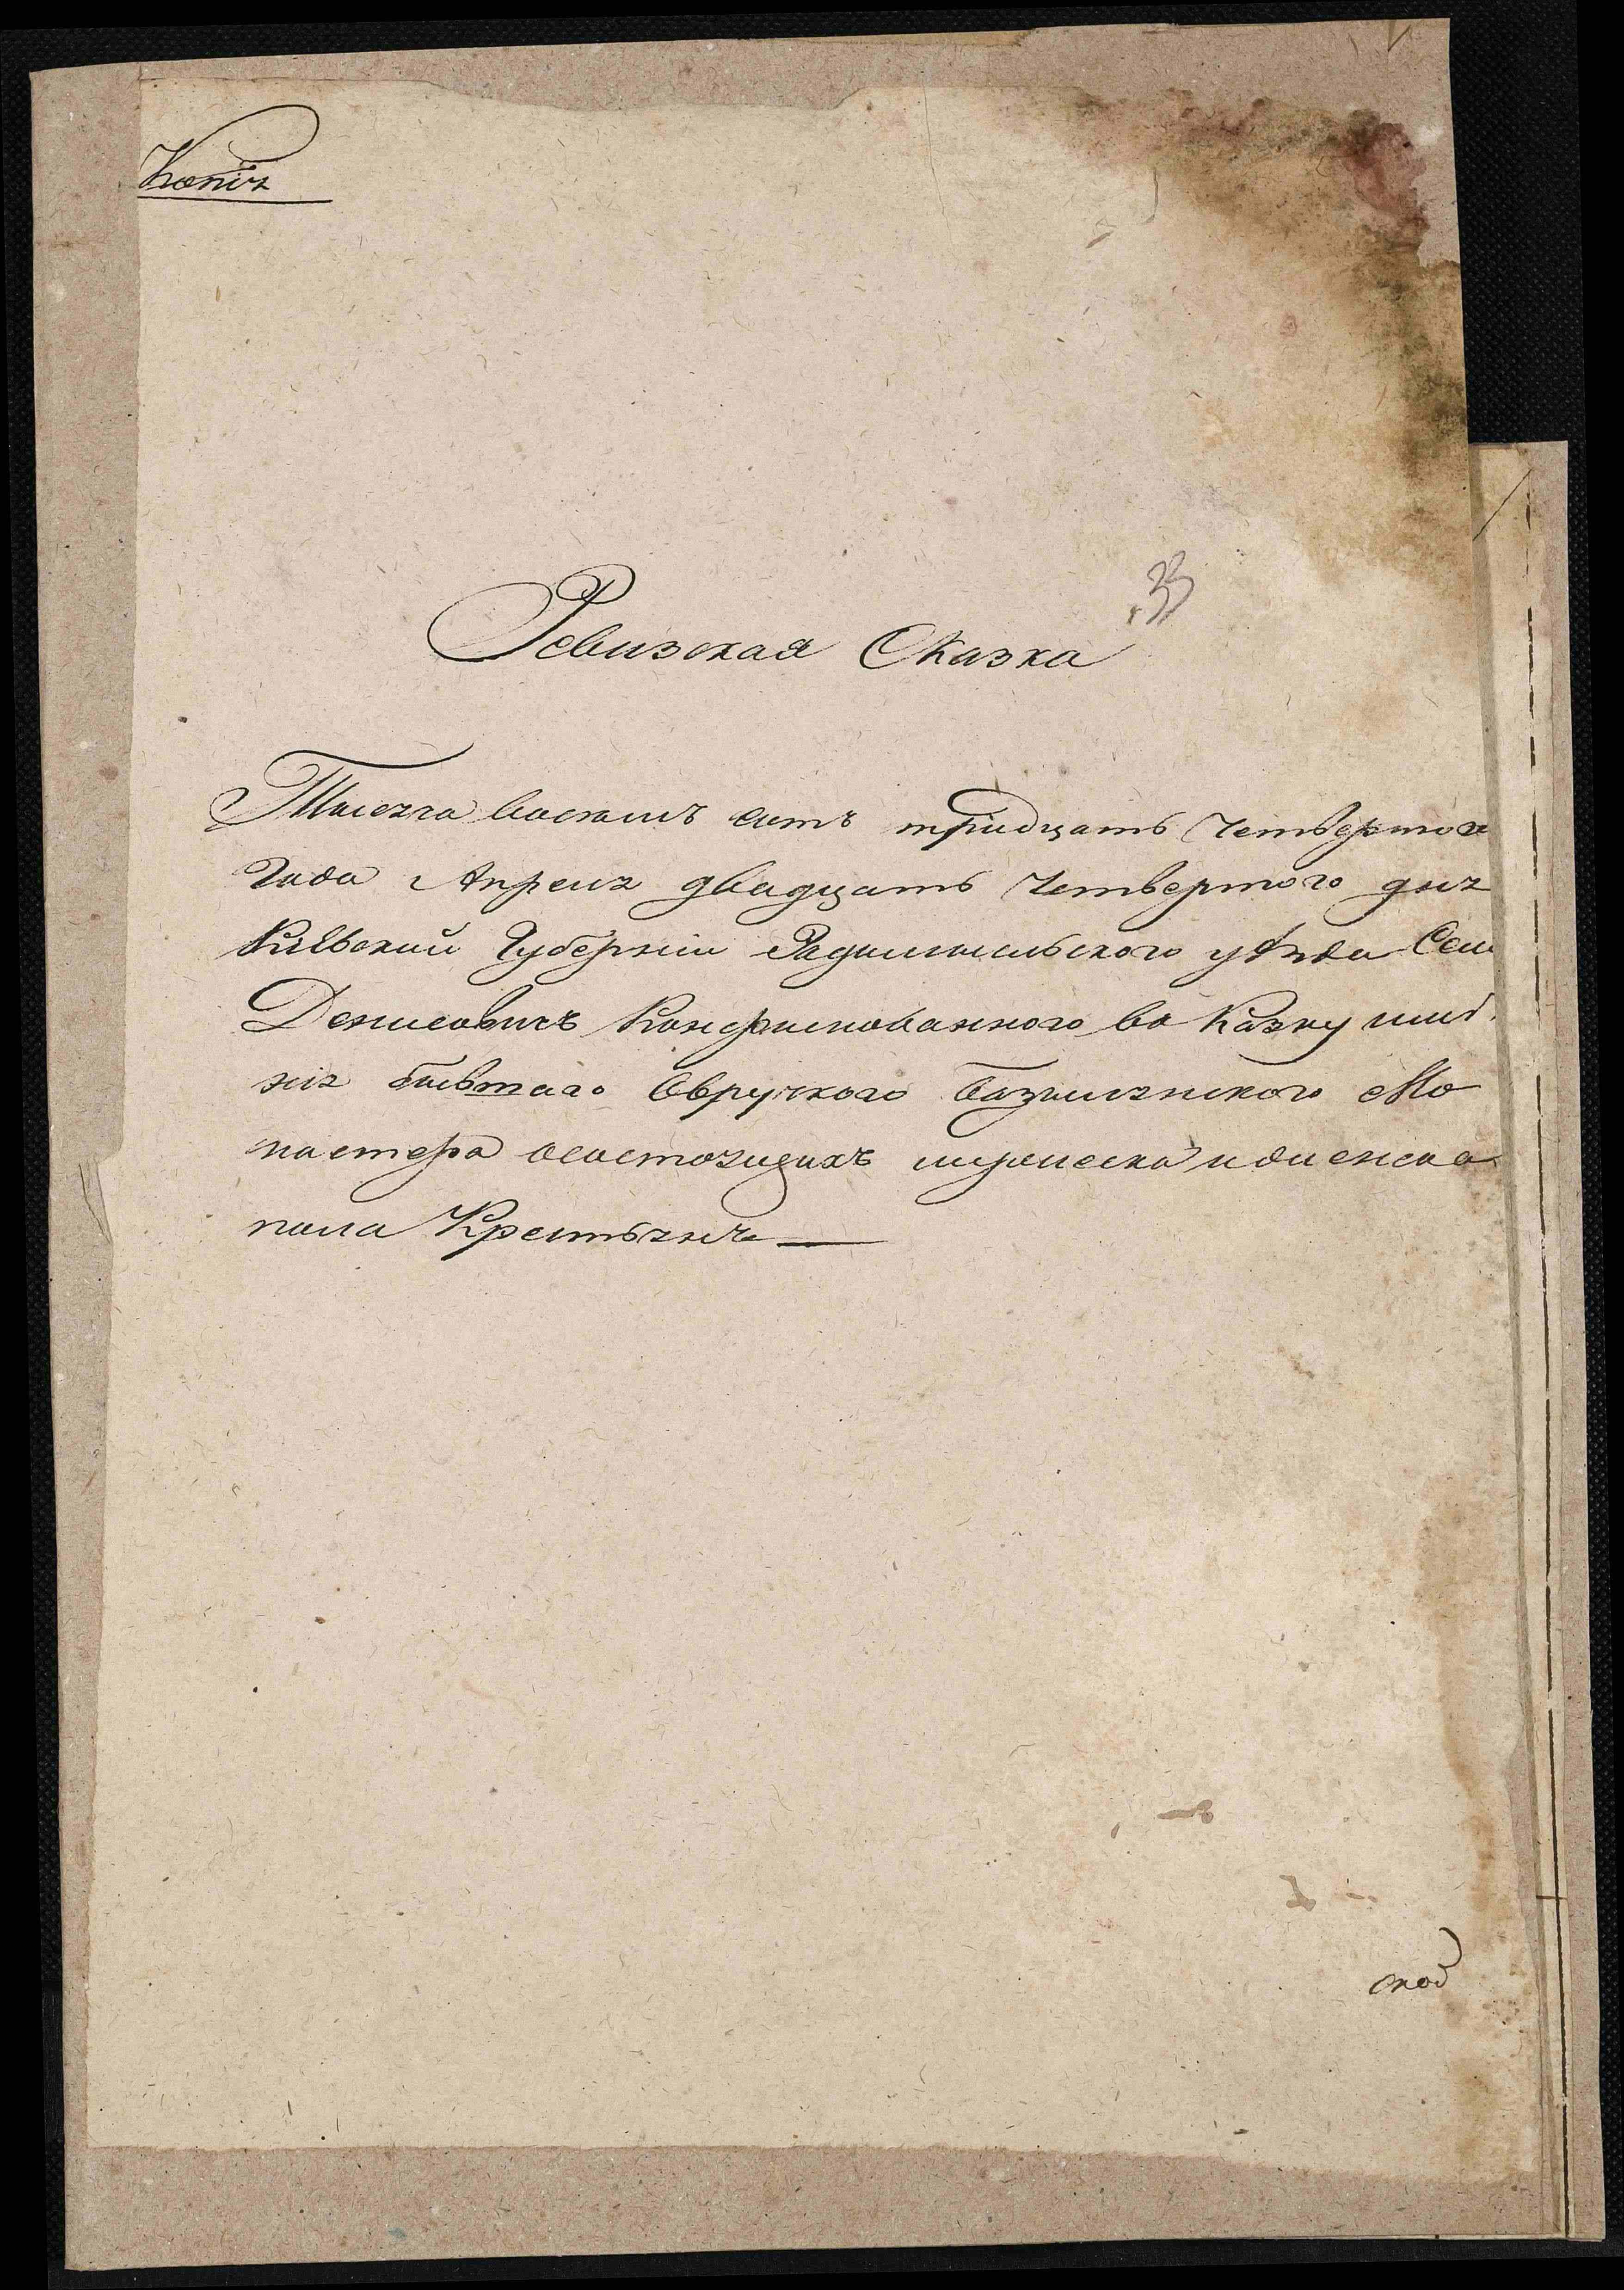 Копія
33
Ревизская Сказка
Тысяча восемь сотъ тридцать четвертого
Года Апреля двадцать четвертого дня
Кіевской Губерніи Радомысльского уѣзда Села
Денисовичъ Конфискованного во Казну имѣ
нія бывшаго Овручкого Базиліянского Мо
настера о состоящихъ мужеска и женска
пола Крестьянъ
спод